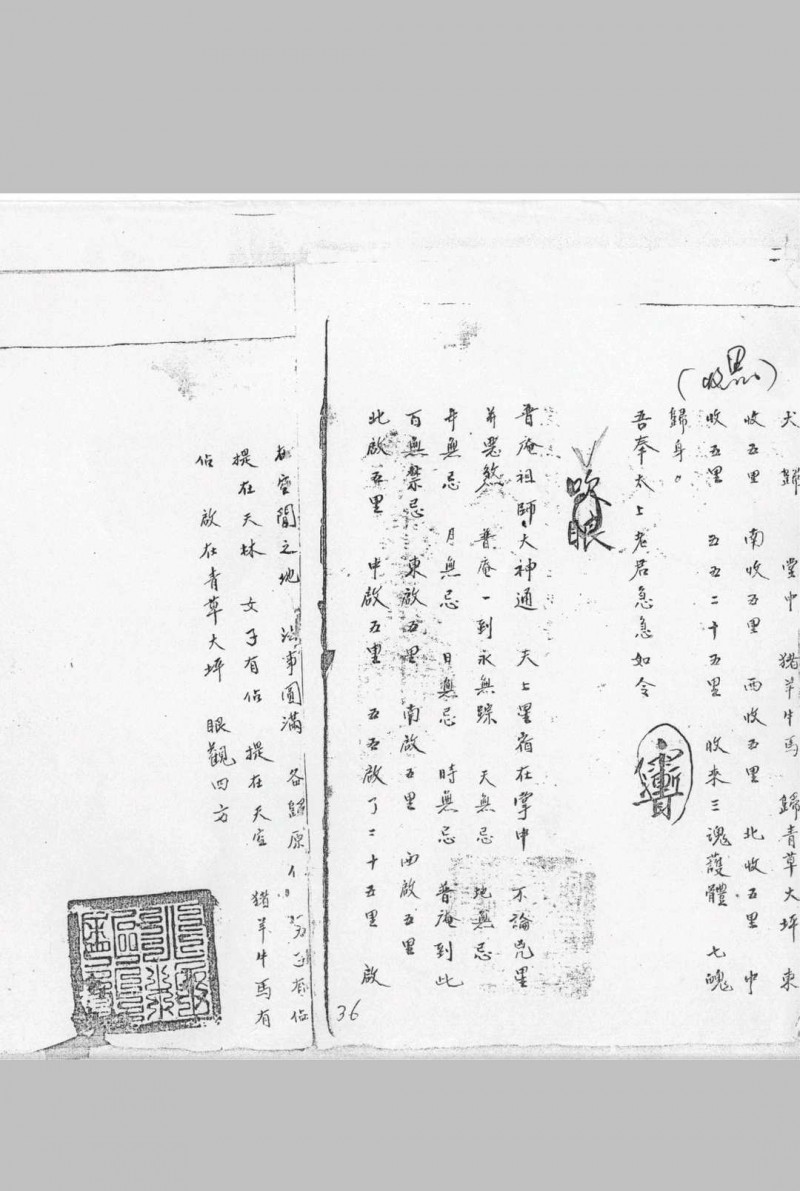 犬歸 堂中 猪羊牛馬 歸青草大坪 東
收五里 南收五里 西收五里 北收五里 中
收五里 五五二十五里 收來三魂護體 七魄
歸身。
(收黑)
吾奉太上老君急急如令
吹眼
普庵祖師大神通 天上星宿在掌中 不論兇星
并惡煞 普庵一到永無踪 天無忌 地無忌
年無忌 月無忌 日無忌 時無忌 普庵到此
百無禁忌 東啟五里 南啟五里 西啟五里
北啟五里 中啟五里 五五啟了二十五里 啟
36
在空閒之地 法事圓滿 各歸原位。男子有佔
提在天林 女子有佔 提在天宮 猪羊牛馬有
佔 啟在青草大坪 眼觀四方